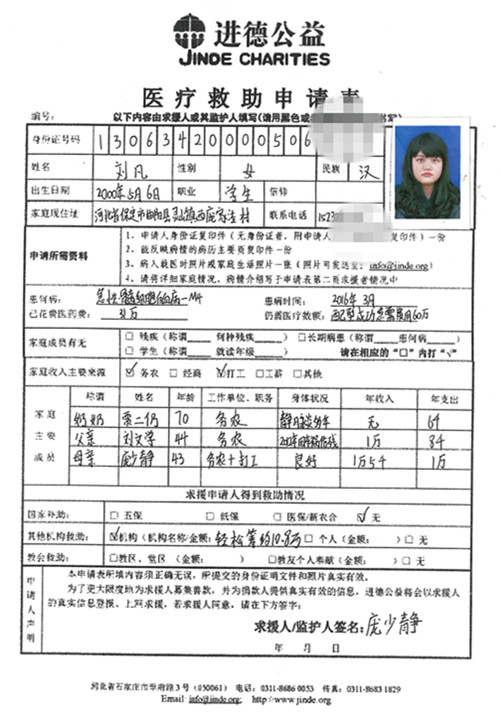 进德公益
JINDE CHARITIES
医疗救助申请表
编号： 以下内容由求援人或其监护人填写(请用黑色或
身份证号码 1 3 0 6 3 4 2 0 0 0 0 5 0 6
姓名 刘凡 性别 女 民族 汉
出生日期 2000年5月6日 职业 学生 信仰
家庭现住址 河北省保定市曲阳县 村 联系电话
申请所需资料
1、申请人身份证复印件（无身份证者，附申请人 复印件）一份
2、能反映病情的病历主要页复印件一份
3、病人就医时照片或家庭生活照片一张（照片可发送至：info@jinde.org）
4、请将详细家庭情况、病情介绍写于申请表第二页求援者情况中
患何病： 急性髓细胞白血病-M4 患病时间： 2016年3月
已花费医药费： 31万 仍需医疗费数额： 配型成功总需费用60万
家庭成员有无 □ 残疾（称谓 何种残疾 ） □ 长期患病（称谓 患何病 ）
□ 学生（称谓 就读年级 ） 请在相应的“□”内打“√”
家庭收入主要来源 ☑务农 □ 经商 ☑打工 □工薪 □其他
家庭主要成员 称谓 姓名 年龄 工作单位、职务 身体状况 年收入 年支出
奶奶 贾二仍 70 务农 静脉 无 6千
父亲 刘文学 44 务农 1万 8千
母亲 庞少静 43 务农+打工 良好 1万5千 1万
求援申请人得到救助情况
国家补助： □ 五保 □ 低保 □ 医保/新农合 ☑无
其他机构救助： ☑机构（机构名称/金额：轻松筹约10.8万 □ 个人（金额： ）□ 无
教会救助： □教区、堂区（金额： ） □教友个人奉献（金额： ）□ 无
申请人声明
本申请表所填内容须正确无误，所提交的身份证明文件和照片真实有效。
为了更大限度地为求援人募集善款，并为捐款人提供真实有效的信息，进德公益将会以求援人
的真实信息登报、上网求援，若求援人同意，请在下方签字：
求援人/监护人签名：庞少静
年 月 日
河北省石家庄市华府路3号（050061） 电话：0311-8686 0053 传真：0311-8683 1829
Email: info@jinde.org; http://www.jinde.org